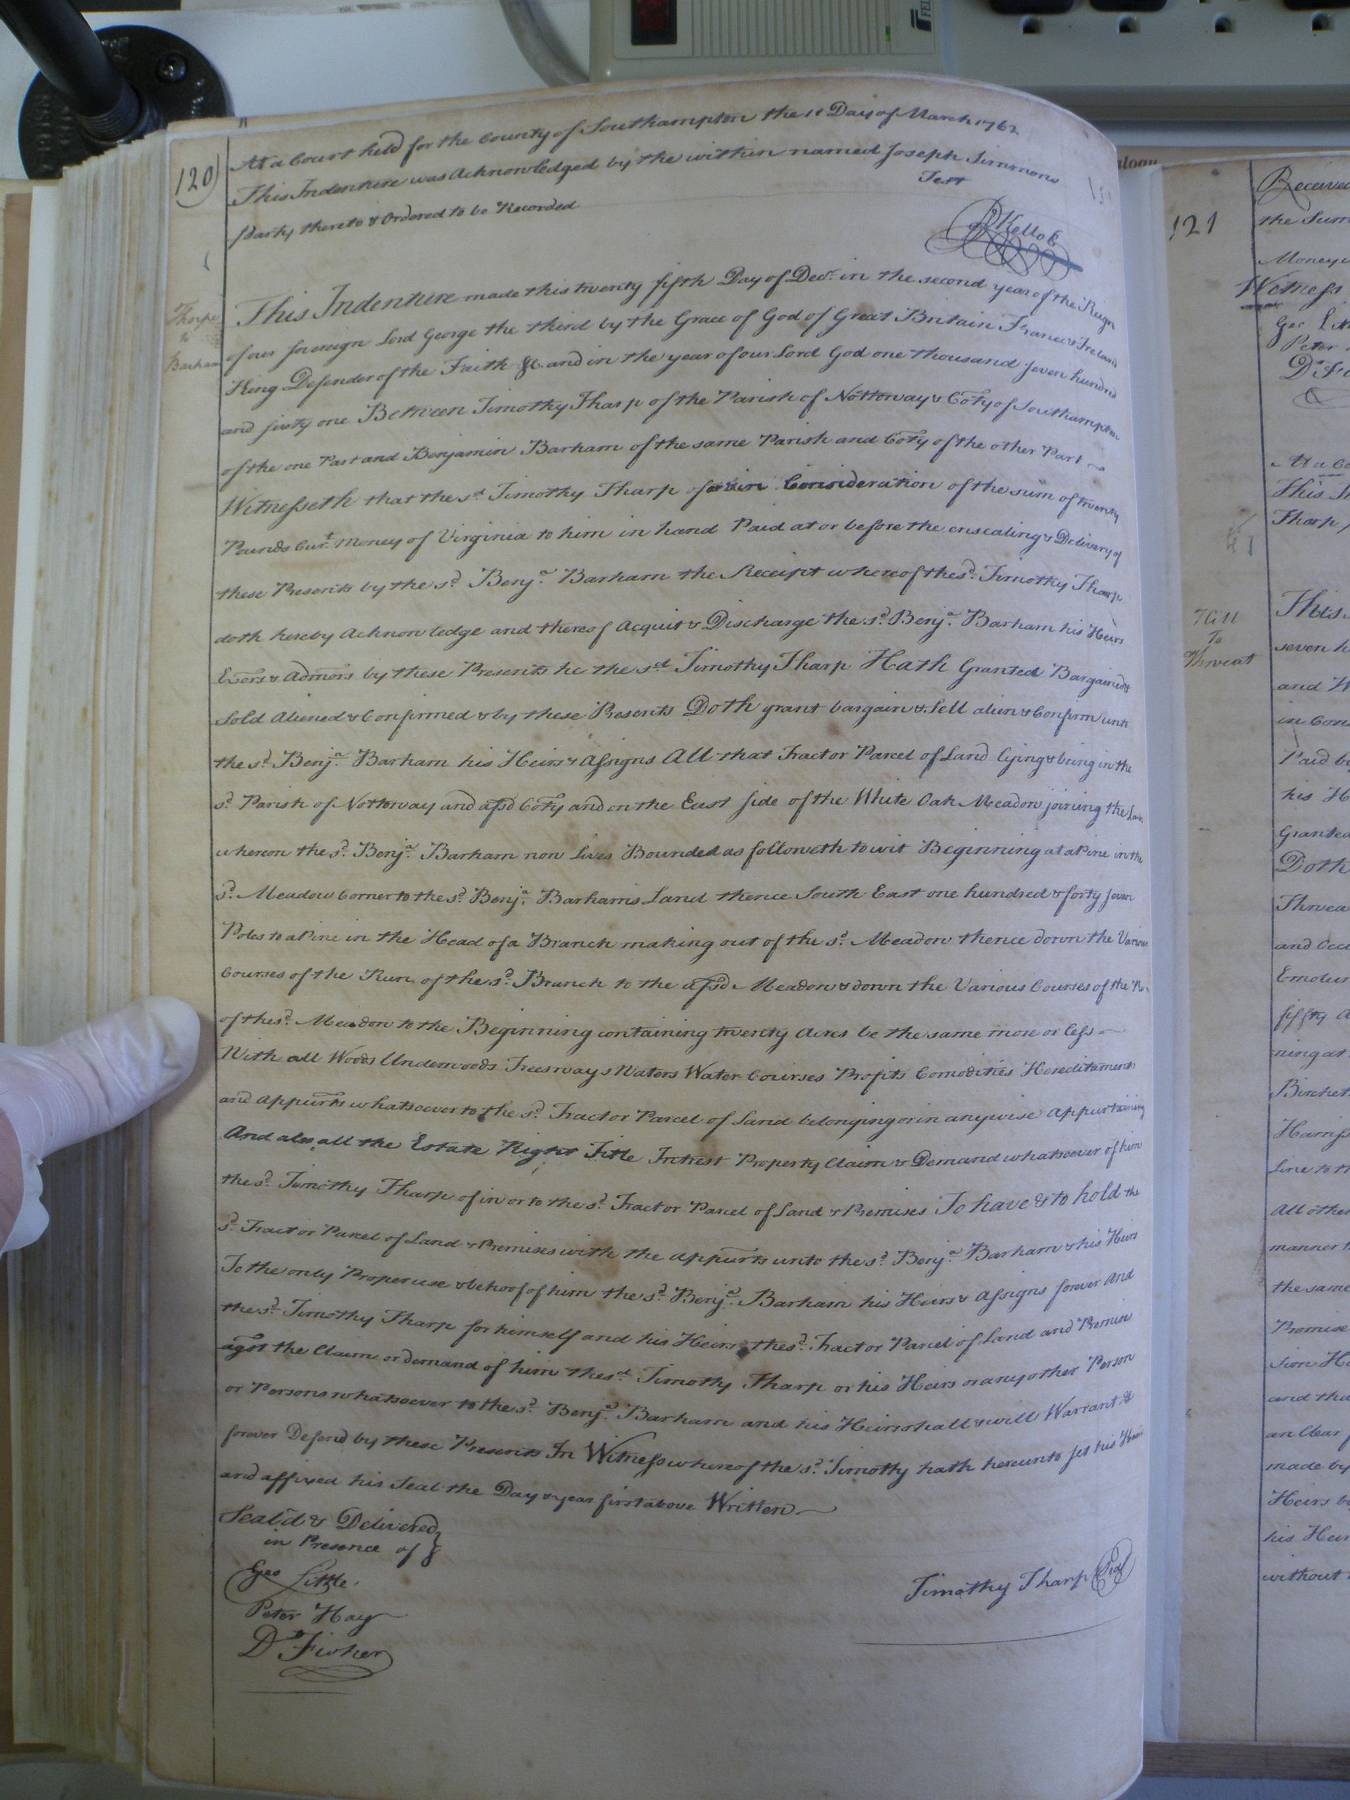 120
At a Court held for the County of Southampton the 11 Day of March 1762
This Indenture was Acknowledged by the within named Joseph Simmons
party thereto & Ordered to be Recorded
Test
RKello C
Thorpe
to
Barham
This Indenture made this twenty fifth Day of Decr. in the second year of the Reign
of our Sovereign Lord George the third by the Grace of God of Great Britain France & Ireland
King Defender of the Faith &c and in the year of our Lord God one thousand seven hundred
and sixty one Between Timothy Tharp of the Parish of Nottoway & Coty of Southampton
of the one Part and Benjamin Barham of the same Parish and Coty of the other Part
Witnesseth that the sd. Timothy Tharp for & in Consideration of the sum of twenty
Pounds Curt. Money of Virginia to him in hand Paid at or before the ensealing & Delivery of
these Presents by the sd. Benja. Barham the Receipt whereof the sd. Timothy Tharp
doth hereby Acknowledge and thereof Acquit & Discharge the sd. Benja. Barham his Heirs
Exors & Admors by these Presents he the sd Timothy Tharp Hath Granted Bargained &
Sold Aliened & Confirmed & by these Presents Doth grant bargain & Sell alien & Confirm unto
the sd. Benja. Barham his Heirs & Assigns All that Tract or Parcel of Land lying & being in the
sd. Parish of Nottoway and afsd Coty and on the East side of the White Oak Meadow joining the Land
whereon the sd. Benja. Barham now Lives Bounded as followeth to wit Beginning at a Pine in the
sd. Meadow Corner to the sd. Benja. Barhams Land thence South East one hundred & forty seven
Poles to a Pine in the Head of a Branch making out of the sd. Meadow thence down the Various
Courses of the Run of the sd. Branch to the afsd. Meadow & down the Various Courses of the Run
of the sd. Meadow to the Beginning containing twenty Acres be the same more or less
With all Woods Underwoods Freeways Waters Water Courses Profits Comodities Hereditaments
and Appurts whatsoever to the sd. Tract or Parcel of Land belonging or in anywise Appurtaining
And also all the Estate Right Title Intrest Property Claim & Demand whatsoever of him
the sd. Timothy Tharp of in or to the sd. Tract or Parcel of Land & Premises To have & to hold the
sd. Tract or Parcel of Land & Premises with the Appurts unto the sd. Benja. Barham & his Heirs
To the only Proper use & behoof of him the sd. Benja. Barham his Heirs & Assigns forever And
the sd. Timothy Tharp for himself and his Heirs the sd. Tract or Parcel of Land and Premises
agst the Claim or demand of him the sd. Timothy Tharp or his Heirs or any other Person
or Persons whatsoever to the sd. Benja. Barham and his Heirs shall & will Warrant &
forever Defend by these Presents In Witness whereof the sd. Timothy hath hereunto set his Hand
and affixed his Seal the Day & year first above Written
Seal'd & Delivered
in Presence of
Geo Little
Peter Hay
D Fisher
Timothy Tharp Seal
121
Received
the Sum
Witness
Peter
At a Co
This In
Tharp
Hill
To
Threat
This
seven h
and W
in Con
Paid b
his H
Granted
Doth
Threa
and Occ
fifty A
ning at
Birchet
Harriss
Line to th
All other
manner
the same
Premise
sion H
and tha
an Clear
made by
Heirs
his Heir
without